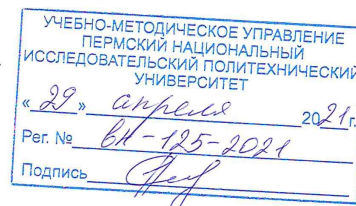 УЧЕБНО-МЕТОДИЧЕСКОЕ УПРАВЛЕНИЕ
ПЕРМСКИЙ НАЦИОНАЛЬНЫЙ
ИССЛЕДОВАТЕЛЬСКИЙ ПОЛИТЕХНИЧЕСКИЙ
УНИВЕРСИТЕТ
«29» апреля 2021г.
Рег. № вн-125-2021
Подпись